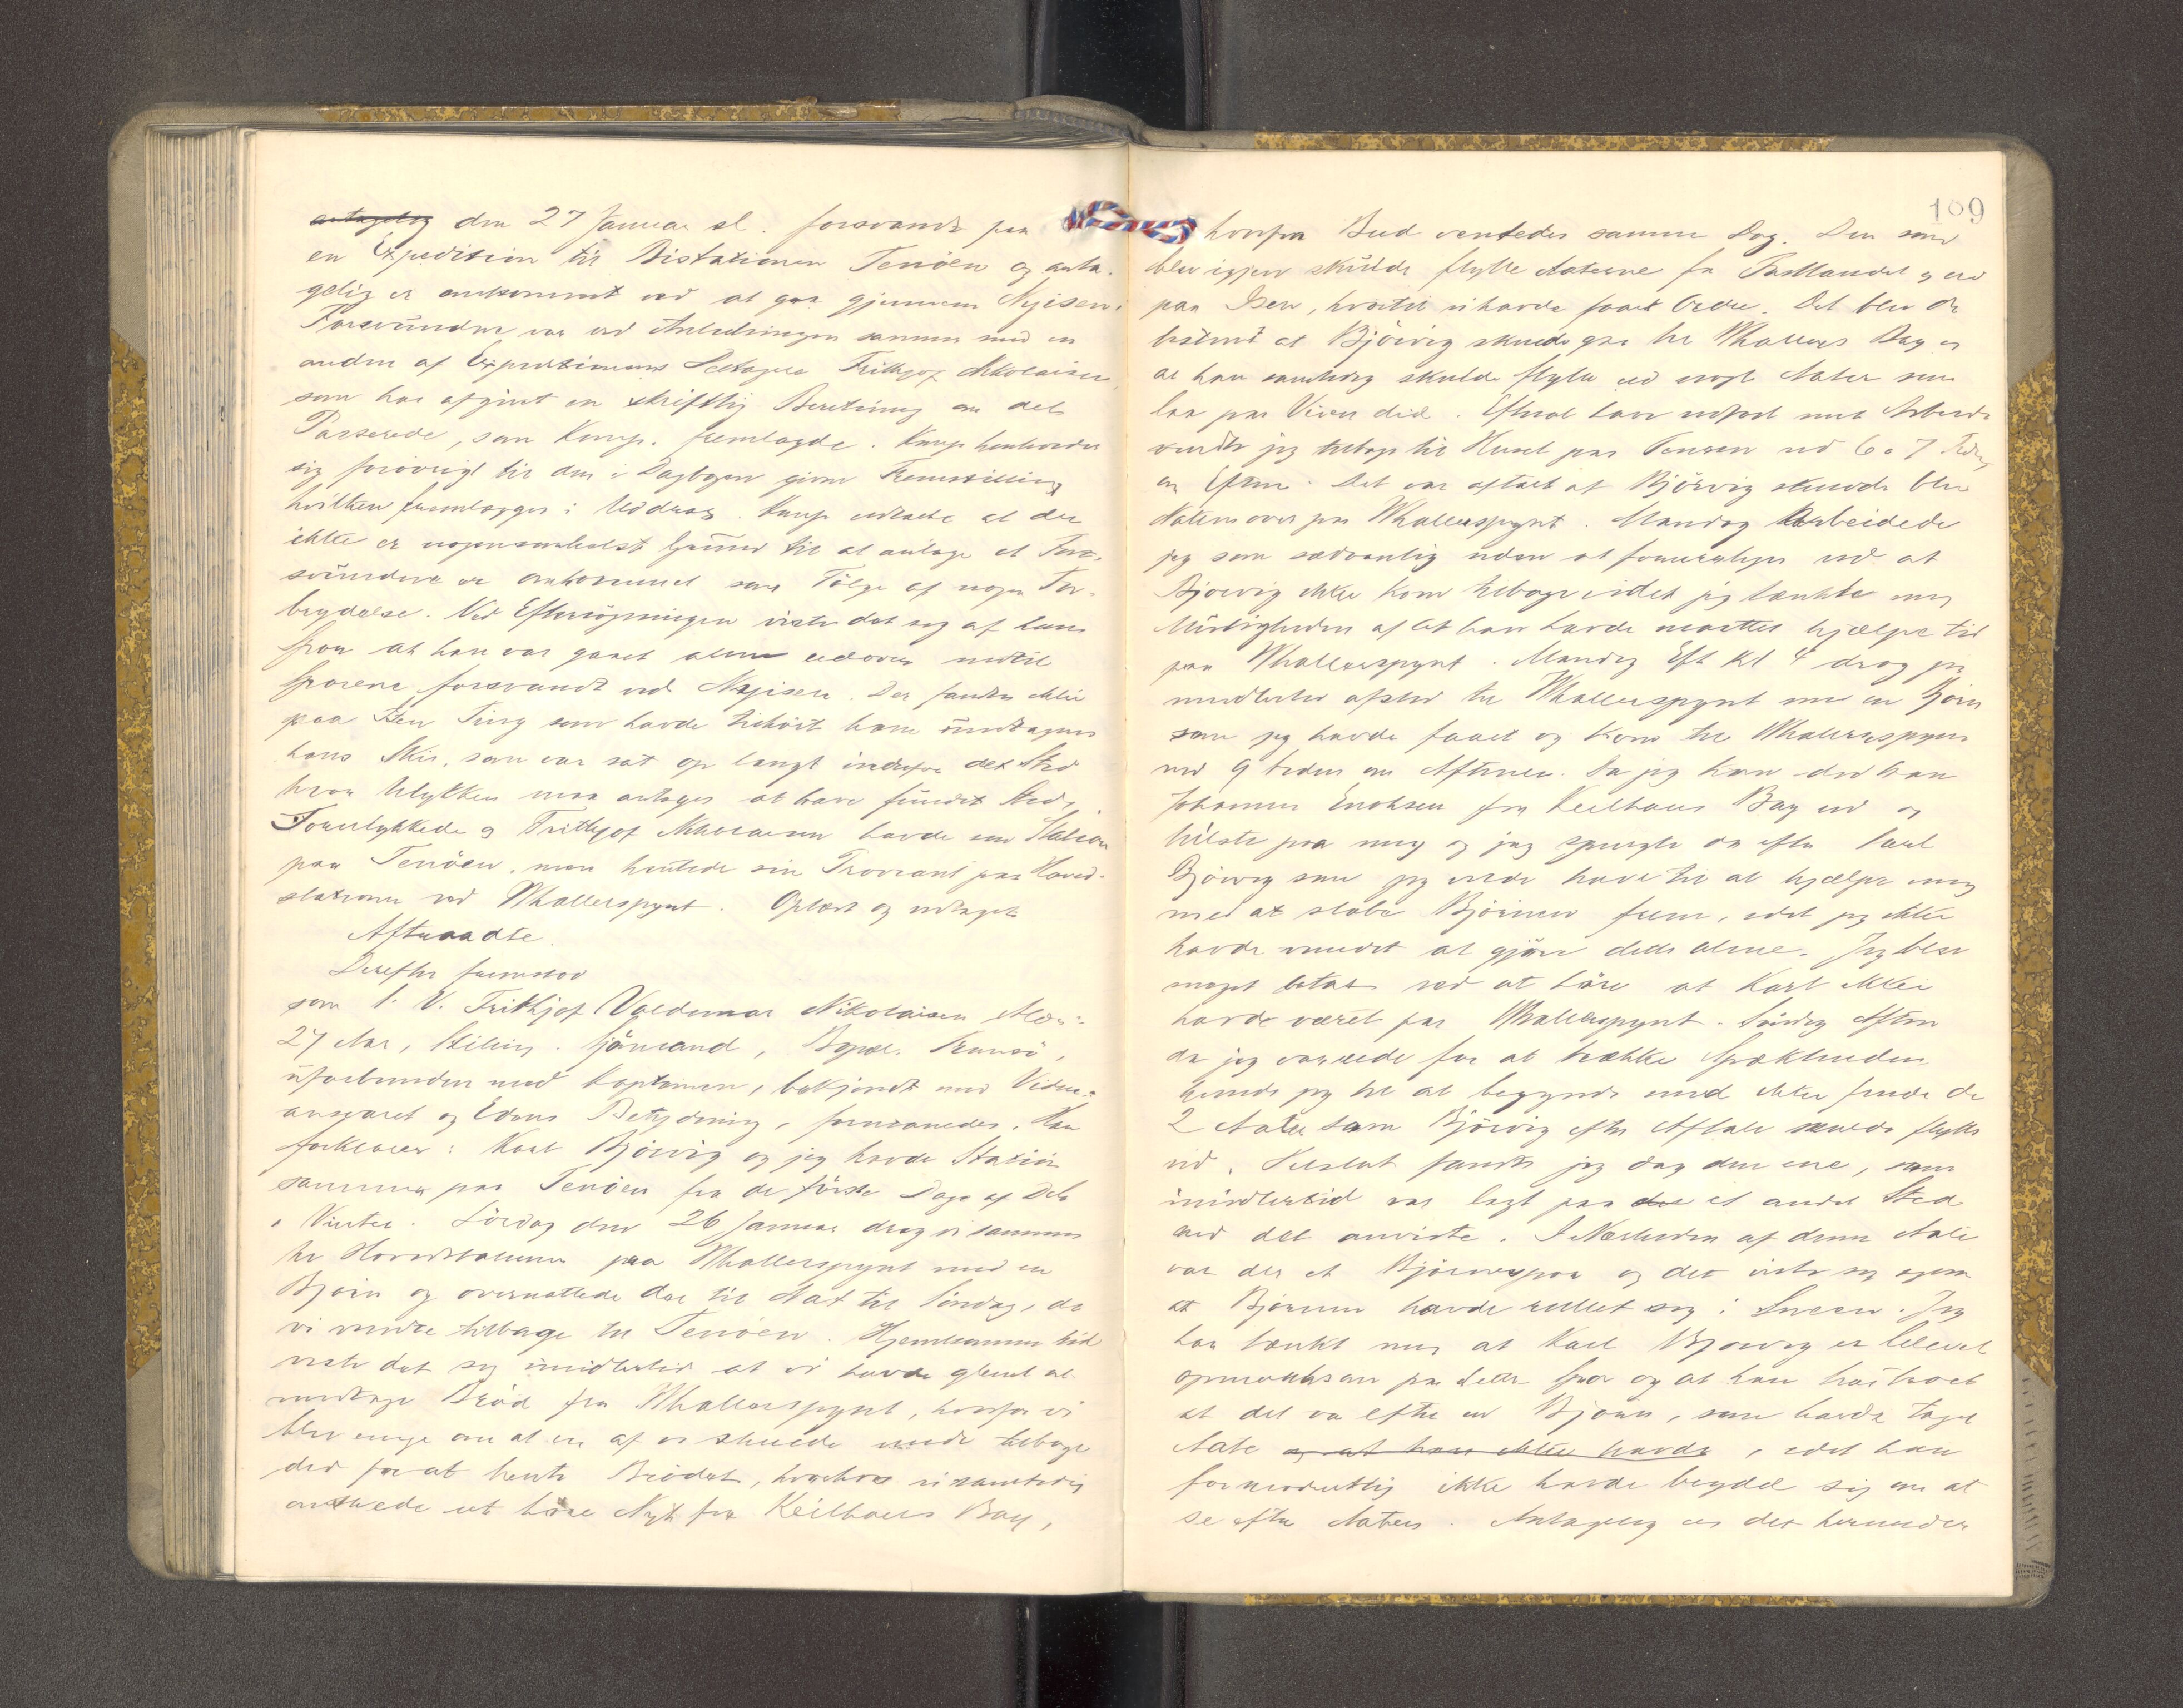 antagelig den 27 Januar sl. forsvandt paa
en Expedition til Bistationen Tenöen og anta-
gelig er omkommet ved at gaa gjennem Nyisen.
Forsvundne var ved Anledningen sammen med en
anden af Expeditionens Deltagere Frithjof Nikolaisen,
som har afgivt en skriftlig Beretning om det
Passerede, som Komp. fremlagde. Komp henholder
sig forövrigt til den i Dagbogen givne Fremstilling
hvilken fremlægges i Uddrag. Komp udtalte at der
ikke er nogensomhelst Grund til at antage at For-
svundne er omkommet som Fölge af nogen For-
brydelse. Ved Eftersögningen viste det sig af hans
Spor at han var gaaet alene udover indtil
Sporene forsvandt ved Nyisen. Der fandtes ikke
paa Isen Ting som havde tilhört ham undtagen
hans Skier, som var sat op langt indenfor det Sted
hvor Ulykken maa antages at have fundet Sted.
Forulykkede og Frithjof Nikolaisen havde sin Station
paa Tenöen, men hentede sin Proviant paa Hoved-
stationen ved Whalerspynt. Oplæst og vedtaget
Aftraadte.
Derefter fremstod
som 1. V. Frithjof Valdemar Nikolaisen Alder:
27 Aar, Stilling. Sjömand, Bopæl. Tromsö,
uforbunden med Kaptainen, bekjendt med Vidne-
ansvaret og Edens Betydning, formanedes. Han
forklarer: Karl Björvig og jeg havde Station
sammen paa Tenöen fra de förste Dage af Dcbr
i Vinter. Lördag den 26 Januar drog vi sammen
til Hovedstationen paa Whalerspynt med en
Björn og overnattede der til Nat til Söndag, da
vi vendte tilbage til Tenöen. Hjemkommen hid
viste det sig imidlertid at vi havde glemt at
medtage Bröd fra Whalerspynt, hvorfor vi
blev enige om at en af os skulde vende tilbage
did for at hente Brödet, hvorhos vi samtidig
önskede at höre Nyt fra Keilhaus Bay,
109
hvorfra Bud ventedes samme Dag. Den som
blev igjen skulde flytte Aaterne fra Fastlandet og ud
paa Isen, hvortil vi havde faaet Ordre. Det blev da
bestemt at Björvig skulde gaa til Whalers Bay og
at han samtidig skulde flytte ud nogle Aater som
laa paa Veien did. Efterat have udfört mit Arbeide
vendte jeg tilbage til Huset paa Tenöen ved 6 a 7 Tiden
om Efterm. Det var aftalt at Björvig skulde blive
Natten over paa Whalerspynt. Mandag Arbeidede
jeg som sædvanlig uden at foruroliges ved at
Björvig ikke kom tilbage idet jeg tænkte mig
Muligheden af at han havde maattet hjælpe til
paa Whalerspynt. Mandag Eft Kl 4 drog jeg
imidlertid afsted til Whalerspynt med en Björn
som jeg havde faaet og kom til Whalerspynt
ved 9 tiden om Aftenen. Da jeg kom did kom
Johannes Enoksen fra Keilhaus Bay ud og
hilste paa mig og jeg spurgte da efter Karl
Björvig som jeg vilde have til at hjælpe mig
med at slæbe Björnen frem, idet jeg ikke
havde magtet at gjöre dette alene. Jeg blev
meget betat ved at höre at Karl ikke
havde været paa Whalerspynt. Söndag Aften
da jeg var ude for at trække Spækhuden
kunde jeg til at begynde med ikke finde de
2 Aater som Björvig efter Aftale skulde flytte
ud. Tilslut fandt jeg dog den ene, som
imidlertid var lagt paa det et andet Sted
end det anviste. I Nærheden af denne Aate
var der et Björnespor og det viste sig ogsaa
at Björnen havde rullet sig i Sneen. Jeg
har tænkt mig at Karl Björvig er blevet
opmærksom paa dette Spor og at han har troet
at det var efter en Björn, som havde taget
Aate og at han ikke havde, idet han
formodentlig ikke havde brydd sig om at
se efter Aaten. Antagelig er det herunder